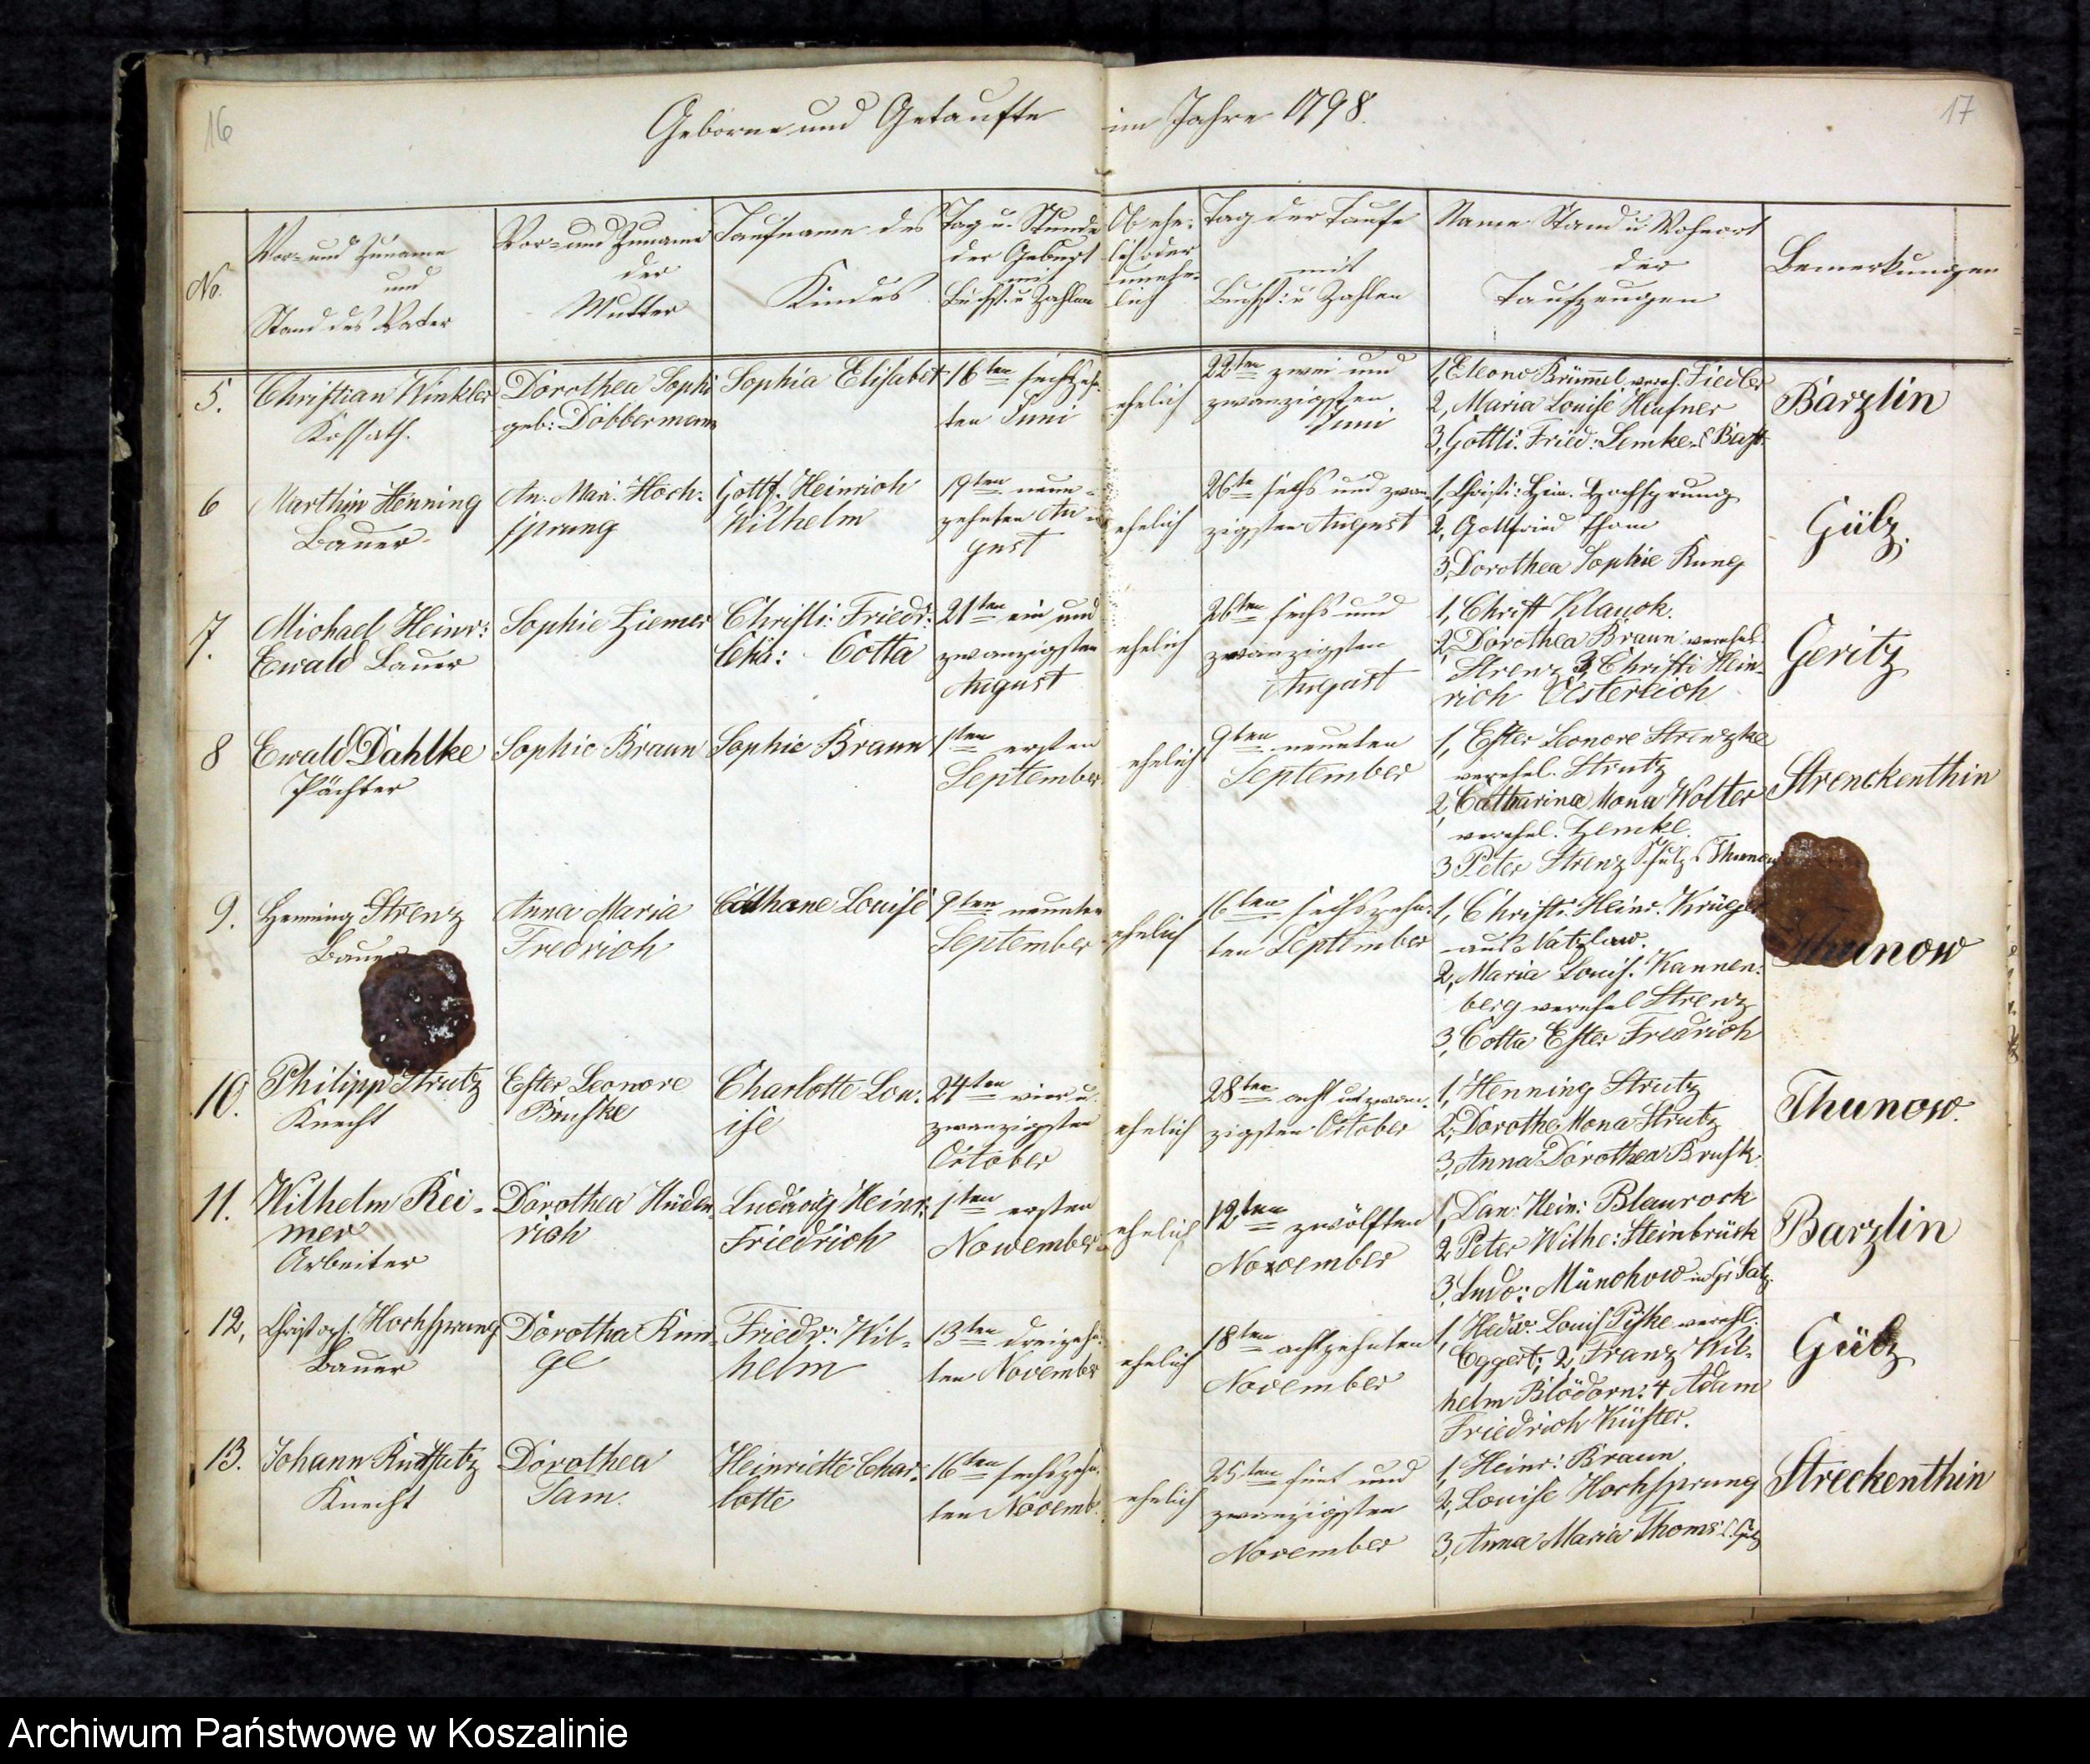 16
Geborne und Getaufte im Jahre 1798.
17
No.
Vor- und Zuname
und
Stand des Vater
Vor- und Zuname
der
Mutter
Taufname des
Kindes
Tag u. Stunde
der Geburt
mit
Buchst: u Zahlen
Ob ehe-
lich oder
unehe-
lich
Tag der Taufe
mit
Buchst: u Zahlen
Name Stand u Wohnort
der
Taufzeugen
Bemerkungen
5.
Christian Winkler
Kossath.
Dorothea Sophi
geb: Dobbermann
Sophia Elisabet
16ten sechszehn-
ten Juni
ehelich
22ten zwei und
zwanzigsten
Juni
1, Eleono Brümmel vereh. Fiedler
2, Maria Louise Heusner
3, Gottli. Fried: Lemke
Barzlin
6
Marthin Henning
Bauer
An: Mari. Hoch-
sprung
Gottf. Heinrich
Wilhelm
19ten neun-
zehnten Au-
gust
ehelich
26te sechs und zwan-
zigsten August
1, Christi: Hein. Hochsprung
2, Gottfried Thom
3, Dorothea Sophie Kung
Gülz.
7.
Michael Heinr:
Ewald Bauer
Sophie Ziemer
Christi: Friedr:
Cha: Cotta
21ten ein und
zwanzigsten
August
ehelich
26ten sechs und
zwanzigsten
August
1, Christ Klauck.
2, Dorothea Braun verehel
Strenz 3, Christi Hein-
rich Oesterreich
Geritz
8
Ewald Dahlke
Pächter
Sophie Braun
Sophie Braun
1ten ersten
September
ehelich
9ten neunten
September
1, Ester Leonore Strenzke
verehel. Strutz
2, Catharina Mona Wolter
verehel. Zemke.
3 Peter Strenz Schulz Thunow
Strenckenthin
9.
Henning Strenz
Bauer
Anna Maria
Fredrich
Louise
9ten neunten
September
ehelich
16ten sechszehn-
ten September
1, Christi: Heinr. Krüger
aus Natzlaw.
2, Maria Louis. Kannen-
berg verehel Strenz
3, Cotta Ester Fredrich
Thunow
10.
Philipp Strutz
Knecht
Ester Leonore
Bruske
Charlotte Lou-
ise
24ten vier u.
zwanzigsten
October
ehelich
28ten acht u zwan-
zigsten October
1, Henning Strutz
2, Dorothe Mona Strutz
3, Anna Dorothea Brusk.
Thunow.
11.
Wilhelm Rei-
mer
Arbeiter
Dorothea Hüden-
rich
Ludwig Heinr:
Friedrich
1ten ersten
November
ehelich
12ten zwölften
November
1, Dan: Hein: Blaurock
2 Peter Wilhe: Steinbrück
3, Ludo: Münchow in Gr Satz.
Barzlin
12,
Christoph Hochsprung
Bauer
Dorothea Kun-
ge
Friedr: Wil-
helm
13ten dreizehn-
ten November
ehelich
18ten achtzehnten
November
1, Hedw: Louis Piske verehl.
Eggert; 2, Franz Wil-
helm Blödorn: 4 Adam
Friedrich Küster.
Gülz
13.
Johann
Knecht
Dorothea
Tam.
Heinriette Char-
lotte
16ten sechszehn-
ten Novemb.
ehelich
25ten fünf und
zwanzigsten
November
1, Heinr: Braun
2, Louise Hochsprung
3, Anna Maria Thoms
Streckenthin
Archiwum Państwowe w Koszalinie